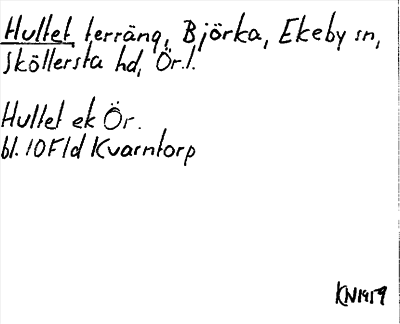 Hultet, terräng, Björka, Ekeby sn,
Sköllersta hd, Ör.l.
Hultet ek Ör.
bl. 10F1d Kvarntorp
KN1959